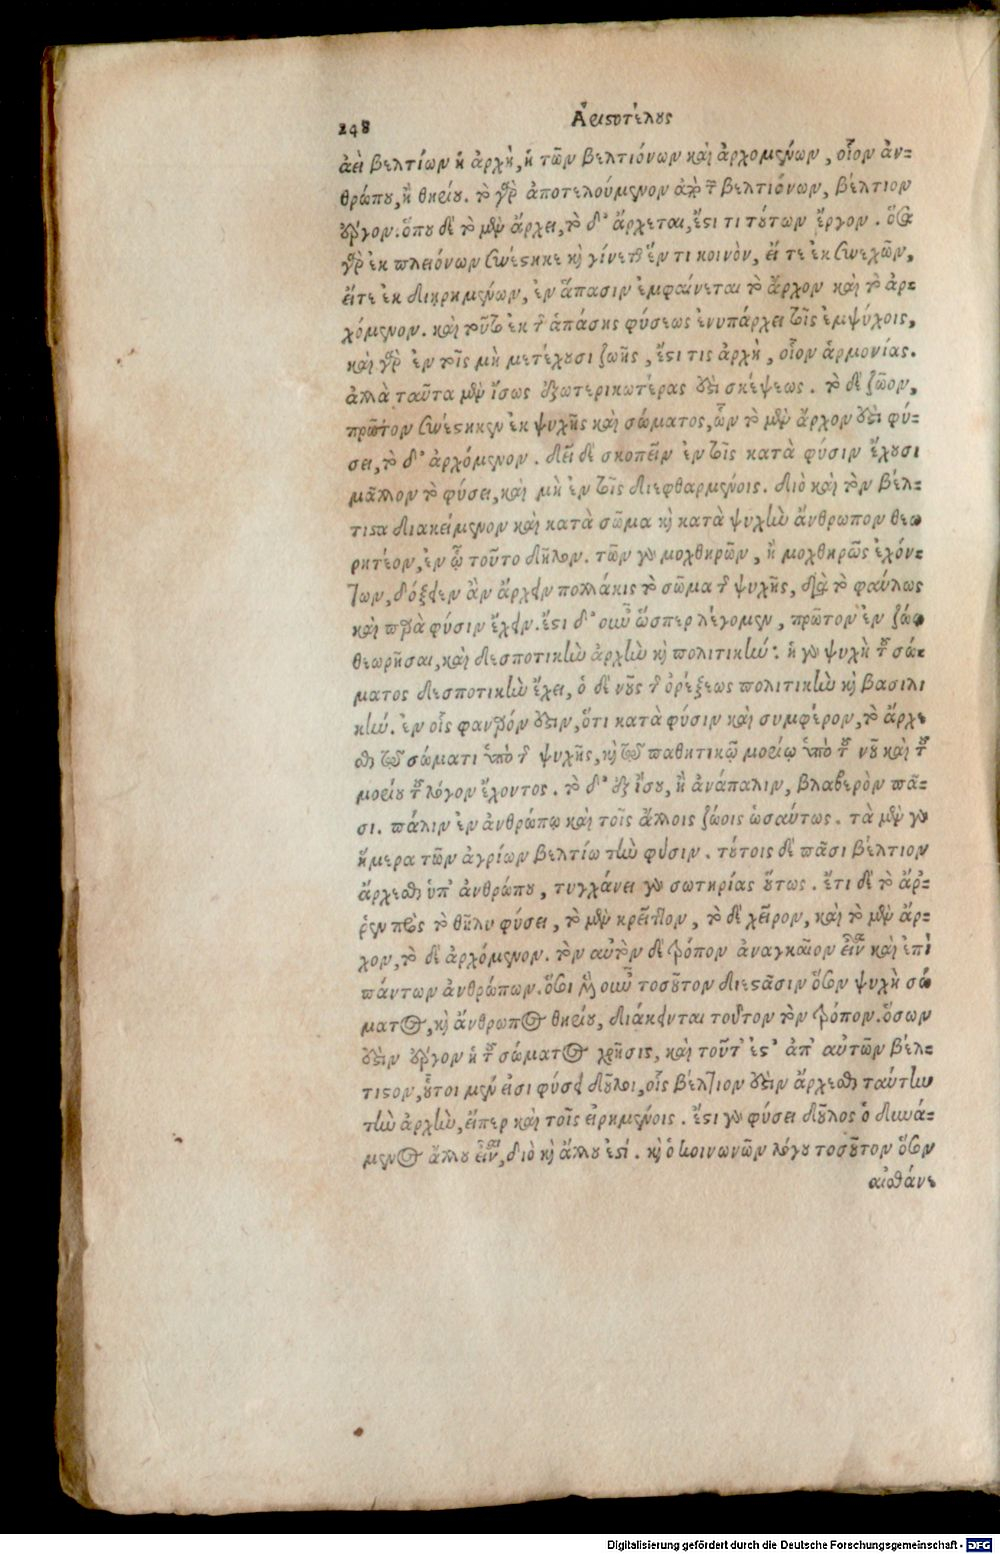 248
Ἀριστοτέλους
ἀεὶ βελτίων ἡ ἀρχὴ, ἡ τῶν βελτιόνων καὶ ἀρχομένων, οἷον ἀν-
θρώπου, ἢ θηρίου. τὸ γὰρ ἀποτελούμενον ἀπὸ τῶν βελτιόνων, βέλτιον
ἔργον. ὅπου δὲ τὸ μὲν ἄρχει, τὸ δ' ἄρχεται, ἔστι τι τούτων ἔργον. ὅσα
γὰρ ἐκ πλειόνων συνέστηκε καὶ γίνεται ἕν τι κοινὸν, εἴ τε ἐκ συνεχῶν,
εἴτε ἐκ διῃρημένων, ἐν ἅπασιν ἐμφαίνεται τὸ ἄρχον καὶ τὸ ἀρ-
χόμενον. καὶ τοῦτο ἐκ τῆς ἁπάσης φύσεως ἐνυπάρχει τοῖς ἐμψύχοις,
καὶ γὰρ ἐν τοῖς μὴ μετέχουσι ζωῆς, ἔστι τις ἀρχὴ, οἷον ἁρμονίας.
ἀλλὰ ταῦτα μὲν ἴσως ἐξωτερικωτέρας ἐστὶ σκέψεως. τὸ δὲ ζῶον,
πρῶτον συνέστηκεν ἐκ ψυχῆς καὶ σώματος, ὧν τὸ μὲν ἄρχον ἐστὶ φύ-
σει, τὸ δ' ἀρχόμενον. δεῖ δὲ σκοπεῖν ἐν τοῖς κατὰ φύσιν ἔχουσι
μᾶλλον τὸ φύσει, καὶ μὴ ἐν τοῖς διεφθαρμένοις. διὸ καὶ τὸν βέλ-
τιστα διακείμενον καὶ κατὰ σῶμα καὶ κατὰ ψυχὴν ἄνθρωπον θεω
ρητέον, ἐν ᾧ τοῦτο δῆλον. τῶν γὰρ μοχθηρῶν, ἢ μοχθηρῶς ἐχόν-
των, δόξειεν ἂν ἄρχειν πολλάκις τὸ σῶμα τῆς ψυχῆς, διὰ τὸ φαύλως
καὶ παρὰ φύσιν ἔχειν. ἔστι δ' οὖν ὥσπερ λέγομεν, πρῶτον ἐν ζώῳ
θεωρῆσαι, καὶ δεσποτικὴν ἀρχὴν καὶ πολιτικήν: ἡ γὰρ ψυχὴ τοῦ σώ-
ματος δεσποτικὴν ἔχει, ὁ δὲ νοῦς τῆς ὀρέξεως πολιτικὴν καὶ βασιλι
κήν. ἐν οἷς φανερόν ἐστιν, ὅτι κατὰ φύσιν καὶ συμφέρον, τὸ ἄρχε
σθαι τῷ σώματι ὑπὸ τῆς ψυχῆς, καὶ τῷ παθητικῷ μορίῳ ὑπὸ τοῦ νοῦ καὶ τοῦ
μορίου τοῦ λόγον ἔχοντος. τὸ δ' ἐξ ἴσου, ἢ ἀνάπαλιν, βλαβερὸν πᾶ-
σι. πάλιν ἐν ἀνθρώπῳ καὶ τοῖς ἄλλοις ζώοις ὡσαύτως. τὰ μὲν γὰρ
ἥμερα τῶν ἀγρίων βελτίω τὴν φύσιν. τούτοις δὲ πᾶσι βέλτιον
ἄρχεσθαι ὑπ' ἀνθρώπου, τυγχάνει γὰρ σωτηρίας οὕτως. ἔτι δὲ τὸ ἄῤ-
ῥεν πρὸς τὸ θῆλυ φύσει, τὸ μὲν κρεῖττον, τὸ δὲ χεῖρον, καὶ τὸ μὲν ἄρ-
χον, τὸ δὲ ἀρχόμενον. τὸν αὐτὸν δὲ τρόπον ἀναγκαῖον εἶναι καὶ ἐπὶ
πάντων ἀνθρώπων. ὅσοι μὲν οὖν τοσοῦτον διεστᾶσιν ὅσον ψυχὴ σώ
ματος, καὶ ἄνθρωπος θηρίου, διάκεινται τοῦτον τὸν τρόπον. ὅσων
ἐστὶν ἔργον ἡ τοῦ σώματος χρῆσις, καὶ τοῦτ' ἐστ' ἀπ' αὐτῶν βέλ-
τιστον, οὗτοι μέν εἰσι φύσει δοῦλοι, οἷς βέλτιον ἐστὶν ἄρχεσθαι ταύτην
τὴν ἀρχὴν, εἴπερ καὶ τοῖς εἰρημένοις. ἔστι γὰρ φύσει δοῦλος ὁ δυνά-
μενος ἄλλου εἶναι, διὸ καὶ ἄλλου ἐστί. καὶ ὁ κοινωνῶν λόγου τοσοῦτον ὅσον
αἰσθάνε
Digitalisierung gefördert durch die Deutsche Forschungsgemeinschaft - DFG